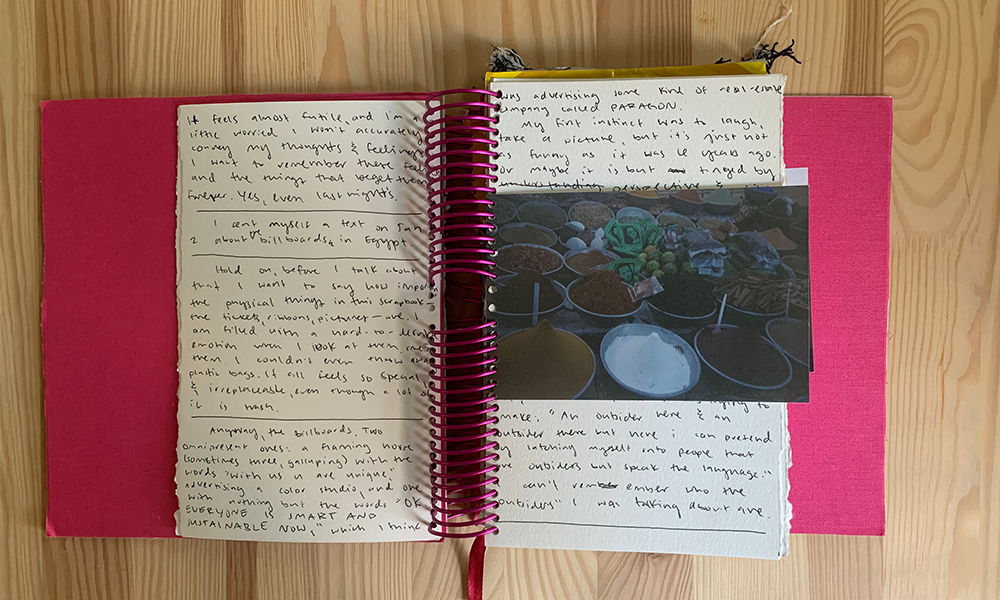 It feels almost futile, and I'm
little worried I won't accurately
convey my thoughts & feelings
I want to remember these
and the things that beget them
forever. Yes, even last night's.
I sent myself a text on
2 about the billboards in Egypt
Hold on, before I talk about
that I want to say how
the physical things in this scrapbook -
the tickets, ribbons, pictures - are. I
am filled with a hard-to-
emotion when I look at them
them I couldn't even throw
plastic bags. It all feels so special
& irreplaceable, even though a lot of
it is trash.
Anyway, the billboards. Two
omnipresent ones: a flaming horse
(sometimes three, galloping) with the
words "with us u are unique,"
advertising a color studio, and one
with nothing but the words "OK
EVERYONE IS SMART AND
SUSTAINABLE NOW," which I think
was advertising some kind of real-estate
company called PARAGON.
My first instinct was to laugh,
take a picture, but it's just not
as funny as it was 4 years ago.
Or maybe it is but tinged by
perspective &
to
make. "An outsider here & an
outsider there but here i can pretend
by latching myself onto people that
are outsiders but speak the language."
I can't remember who the
"outsiders" I was talking about are.